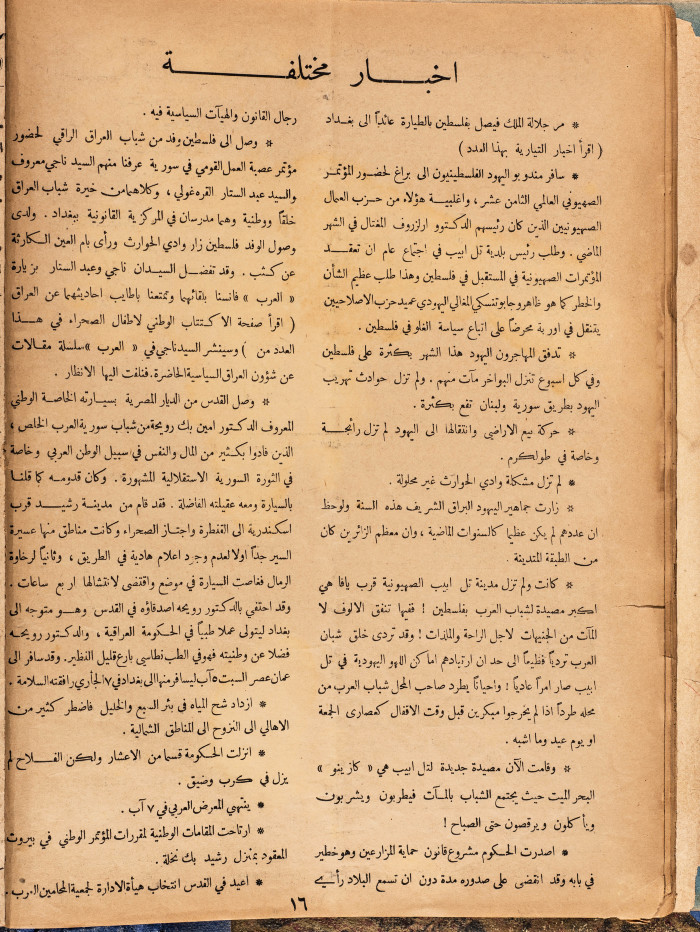 اخبار مختلفة
* مر جلالة الملك فيصل بفلسطين بالطيارة عائداً الى بغداد
( اقرأ اخبار التيارية بهذا العدد )
* سافر مندوبو اليهود الفلسطينيون الى براغ لحضور المؤتمر
الصهيوني العالمي الثامن عشر ، واغلبية هؤلاء من حزب العمال
الصهيونيين الذين كان رئيسهم الدكتوو ارلزروف المغتال في الشهر
الماضي . وطلب رئيس بلدية تل ابيب في اجتماع عام ان تعقد
المؤتمرات الصهيونية في المستقبل في فلسطين وهذا طلب عظيم الشأن
والخطر كما هو ظاهر وجابوتنسكي المغالي اليهودي عميد حزب الاصلاحيين
يتنقل في اوربة محرضاً على اتباع سياسة الغلو في فلسطين .
* تدفق المهاجرون اليهود هذا الشهر بكثرة على فلسطين
وفي كل اسبوع تنزل البواخر مآت منهم . ولم تزل حوادث تهريب
اليهود بطريق سورية ولبنان تقع بكثرة .
* حركة بيع الاراضي وانتقالها الى اليهود لم تزل رائجة
وخاصة في طولكرم .
* لم تزل مشكلة وادي الحوارث غير محلولة .
* زارت جماهير اليهود البراق الشريف هذه السنة ولوحظ
ان عددهم لم يكن عظيما كالسنوات الماضية ، وان معظم الزائرين كان
من الطبقة المتدينة .
* كانت ولم تزل مدينة تل ابيب الصهيونية قرب يافا هي
اكبر مصيدة لشباب العرب بفلسطين ! ففيها تنفق الالوف لا
المآت من الجنيهات لاجل الراحة والملذات ! وقد تردى خلق شبان
العرب تردياً فظيعا الى حد ان ارتيادهم اماكن اللهو اليهودية في تل
ابيب صار امراً عادياً ! واحيانا يطرد صاحب المحل شباب العرب من
محله طرداً اذا لم يخرجوا مبكرين قبل وقت الاقفال كمصارى الجمعة
او يوم عيد وما اشبه .
* وقامت الآن مصيدة جديدة لتل ابيب هي « كازينو »
البحر الميت حيث يجتمع الشباب بالمآت فيطربون ويشربون
ويأكلون ويرقصون حتى الصباح !
* اصدرت الحكوم مشروع قانون حماية المزارعين وهو خطير
في بابه وقد انقضى على صدوره مدة دون ان تسمع البلاد رأي
رجال القانون والهيآت السياسية فيه .
* وصل الى فلسطين وفد من شباب العراق الراقي لحضور
مؤتمر عصبة العمل القومي في سورية عرفنا منهم السيد ناجي معروف
والسيد عبد الستار القره غولي ، وكلاهما من خيرة شباب العراق
خلقاً ووطنية وهما مدرسان في المركزية القانونية ببغداد . ولدى
وصول الوفد فلسطين زار وادي الحوارث ورأى بام العين الكارثة
عن كثب . وقد تفضل السيدان ناجي وعبد الستار بزيارة
« العرب » فانسنا بلقائهما وتمتعنا باطايب احاديثهما عن العراق
( اقرأ صفحة الاكتتاب الوطني لاطفال الصحراء في هذا
العدد من ) وسينشر السيد ناجي في « العرب » سلسلة مقالات
عن شؤون العراق السياسية الحاضرة . فنلفت اليها الانظار .
* وصل القدس من الديار المصرية بسيارته الخاصة الوطني
المعروف الدكتور امين بك رويحة من شباب سورية العرب الخلص ،
الذين فادوا بكثير من المال والنفس في سبيل الوطن العربي وخاصة
في الثورة السورية الاستقلالية المشهورة . وكان قدومه كما قلنا
بالسيارة ومعه عقيلته الفاضلة . فقد قام من مدينة رشيد قرب
اسكندرية الى القنطرة واجتاز الصحراء وكانت مناطق منها عسيرة
السير جداً اولا لعدم وجود اعلام هادية في الطريق ، وثانياً لرخاوة
الرمال فغاصت السيارة في موضع واقتضى لانتشالها اربع ساعات .
وقد احتفي بالدكتور رويحه اصدقاؤه في القدس وهو متوجه الى
بغداد ليتولى عملا طبيا في الحكومة العراقية ، والدكتور رويحه
فضلا عن وطنيته فهو في الطب نطاسي بارع قليل النظير . وقد سافر الى
عمان عصر السبت ٥ آب ليسافر منها الى بغداد في ٧ الجاري رافقته السلامة .
* ازداد شح المياه في بئر السبع والخليل فاضطر كثير من
الاهالي الى النزوح الى المناطق الشمالية .
* انزلت الحكومة قسما من الاعشار ولكن الفلاح لم
يزل في كرب وضيق .
* ينتهي المعرض العربي في ٧ آب .
* ارتاحت المقامات الوطنية لمقررات المؤتمر الوطني في بيروت
المعقود بمنزل رشيد بك نخلة .
* اعيد في القدس انتخاب هيأة الادارة لجمعية المحامين العرب .
١٦